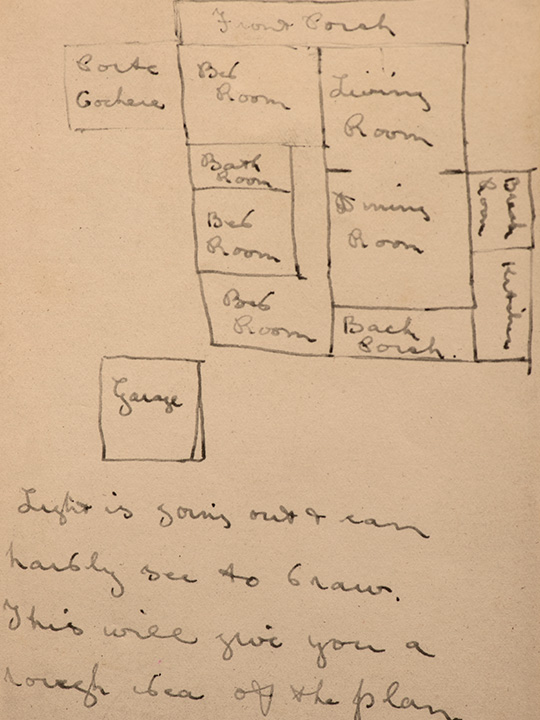 Front Porch
Porte
Cochere
Bed
Room
Living
Room
Bath
Room
Bed
Room
Dining
Room
Back
Room
Kitchen
Bed
Room
Back
Porch.
Garage
Light is going out & can
hardly see to draw.
This will give you a
rough idea of the plan